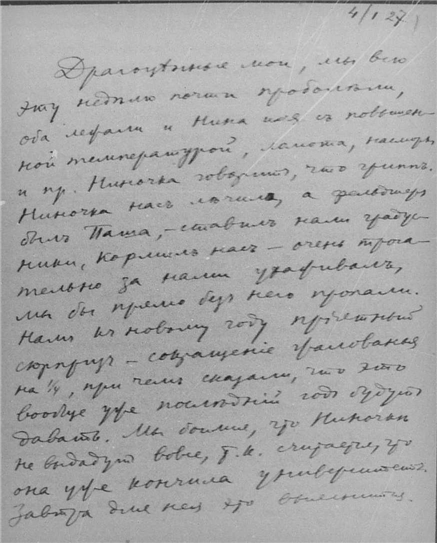 4/I 27
Драгоцѣнные мои, мы всю
эту недѣлю почти проболѣли,
оба лежали и Нина съ повышен-
ной температурой, ломота, насморкъ
и пр. Ниночка говоритъ, что гриппъ.
Ниночка насъ лѣчила, а фельдшеръ
былъ Паша, – ставилъ намъ градус-
ники, кормилъ насъ – очень трога-
тельно за нами ухаживалъ,
мы бы прямо безъ него пропали.
Намъ къ новому году пріятный
сюрпризъ – сокращеніе жалованья
на ¼, при чемъ сказали, что это
вообще уже послѣдній годъ будутъ
давать. Мы боимся, что Ниночкѣ
не выдадутъ вовсе, т.к. считается, что
она уже кончила университетъ.
Завтра для нея это выяснится.